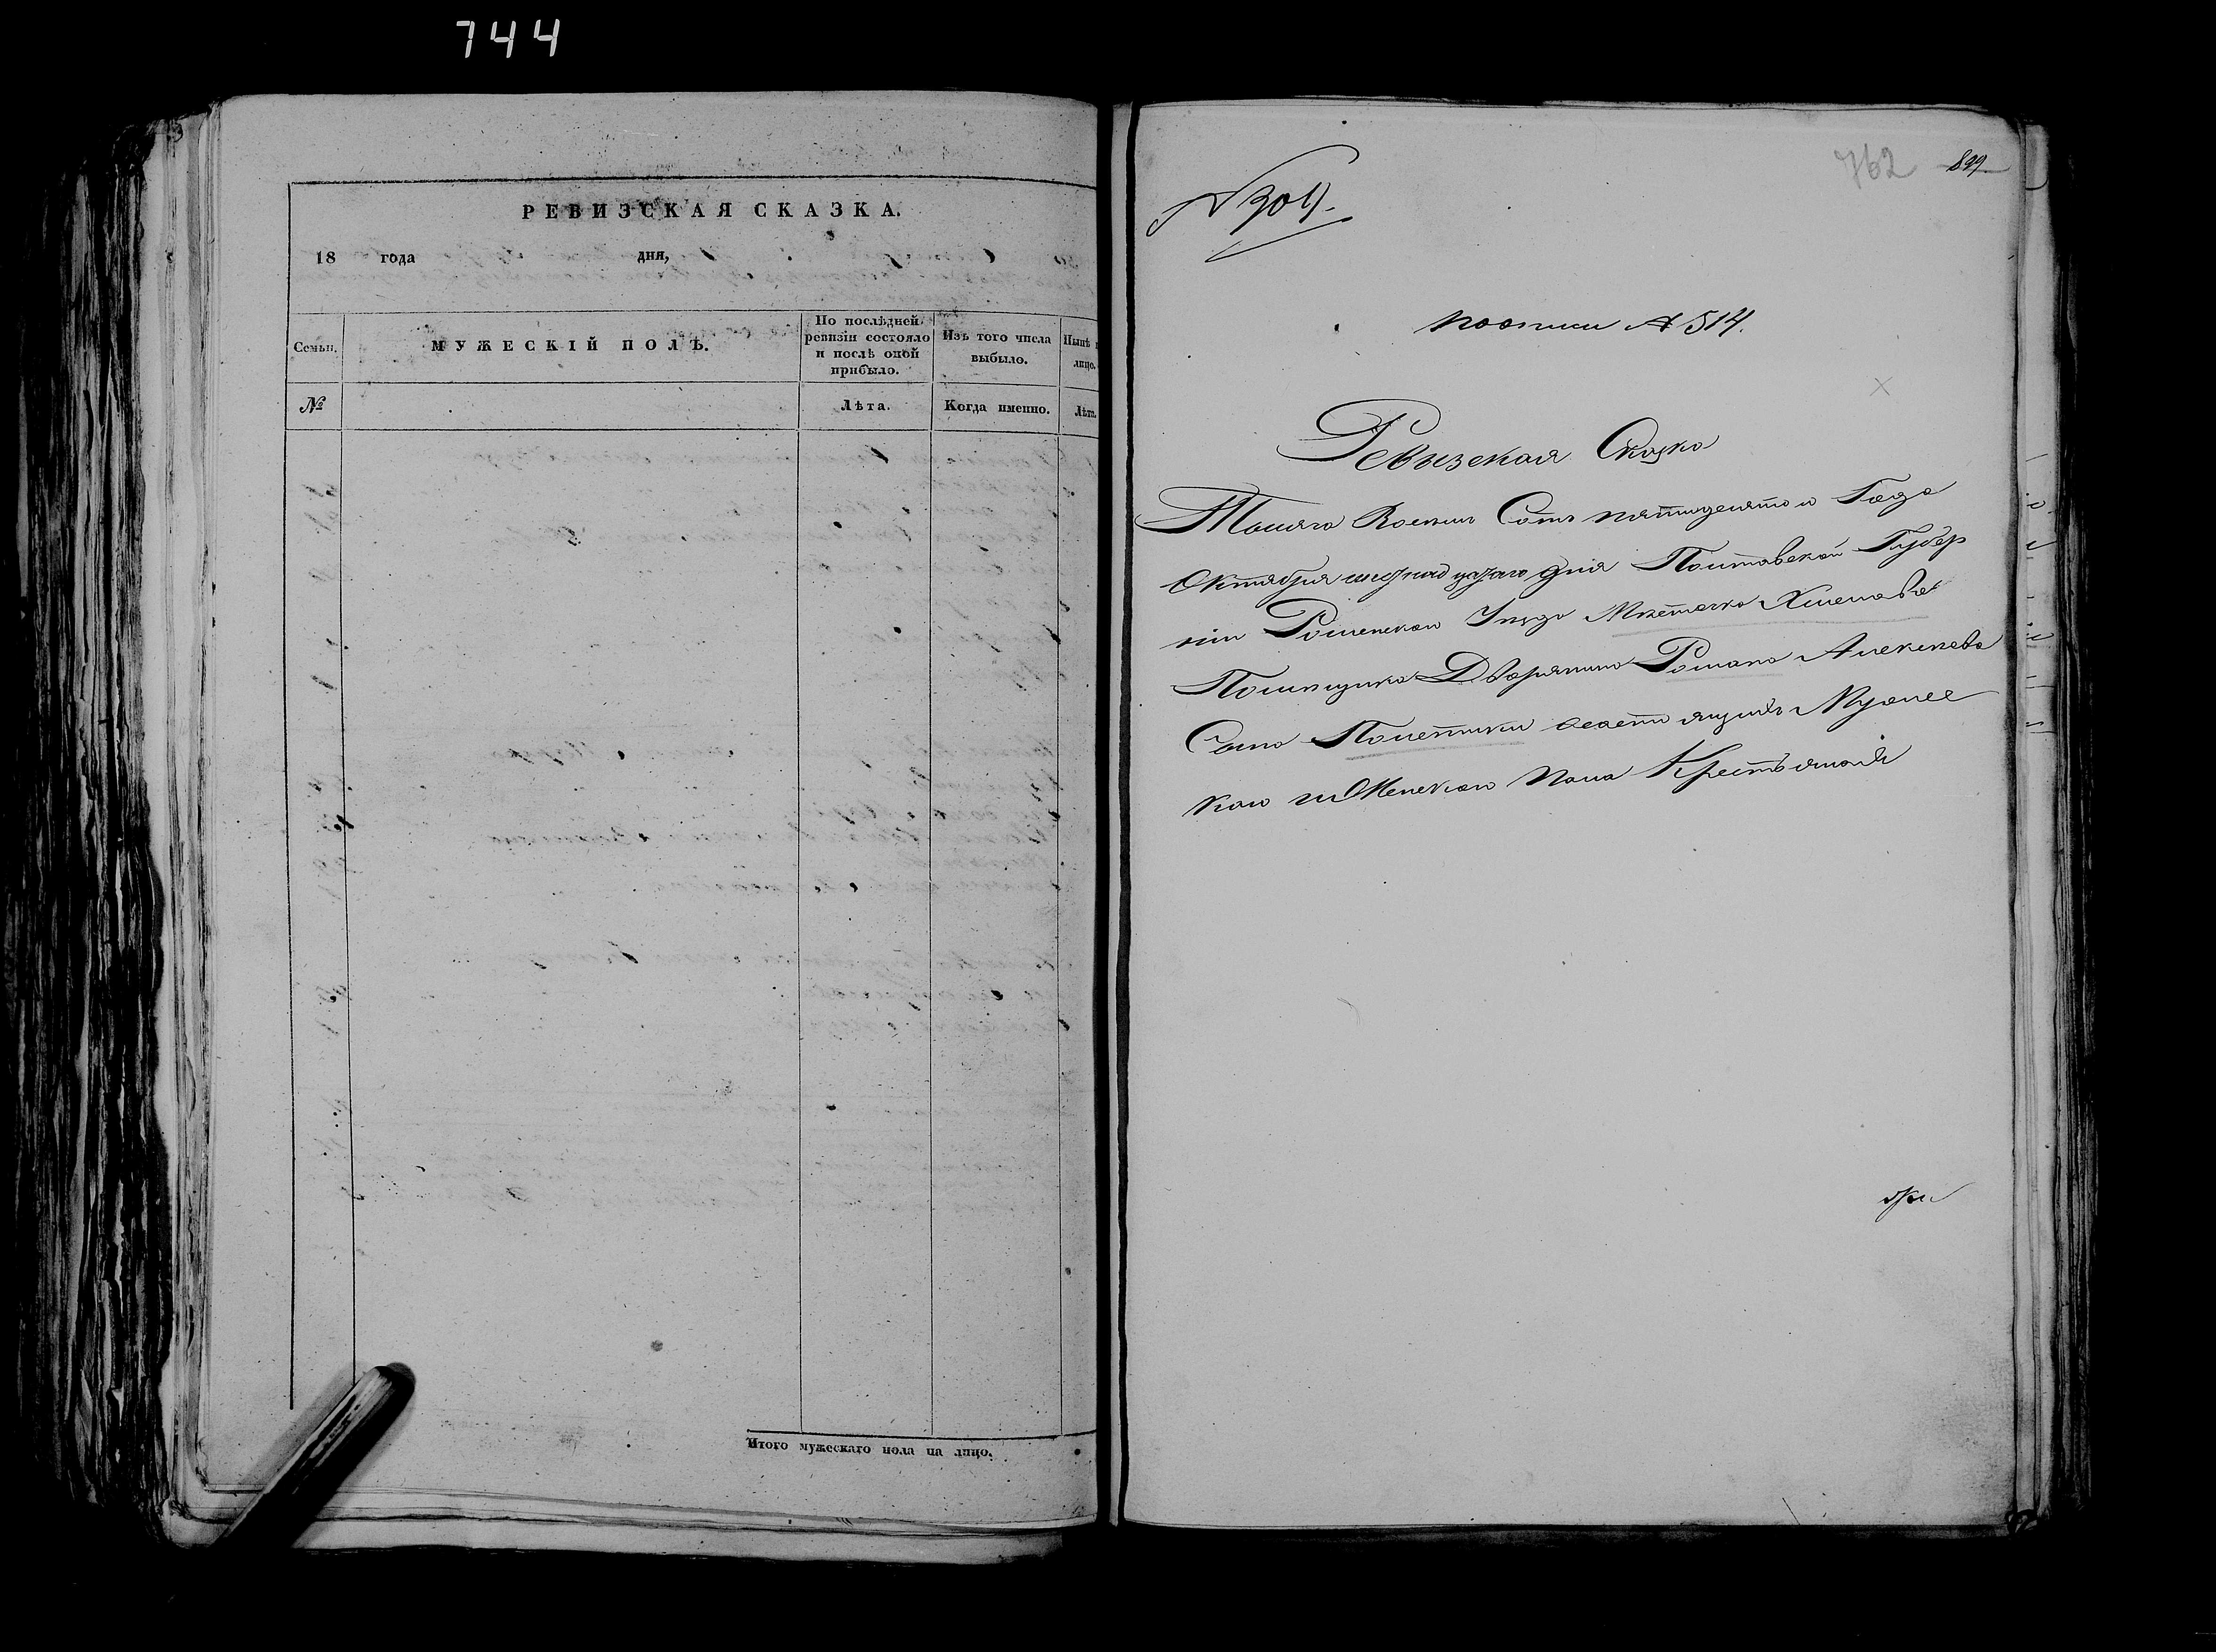 744
РЕВИЗСКАЯ СКАЗКА.
18 года дня,
Семьи.
МУЖЕСКІЙ ПОЛЪ.
По послѣдней ревизіи состояло и послѣ оной прибыло.
Изъ того числа выбыло.
Нынѣ
лицо.
№
Лѣта.
Когда именно.
Лѣта.
Итого мужескаго пола на лицо.
762 899
№
поописи № 514.
Ревизская Сказка
Тысяча Восемь Сотъ пятидесятого Года
Октября дня Полтавской Губер
ніи Роменскаго Уезда Мѣстечка Хмелова
Помѣщика Дворянина Романа Алексѣева
Сына Полетики о состоящихъ Мужес
каго и Женскаго пола Крестьянахъ